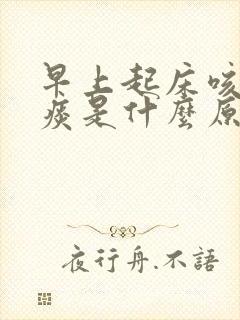 早上起床咳
痰是什麼原
夜行舟.不語